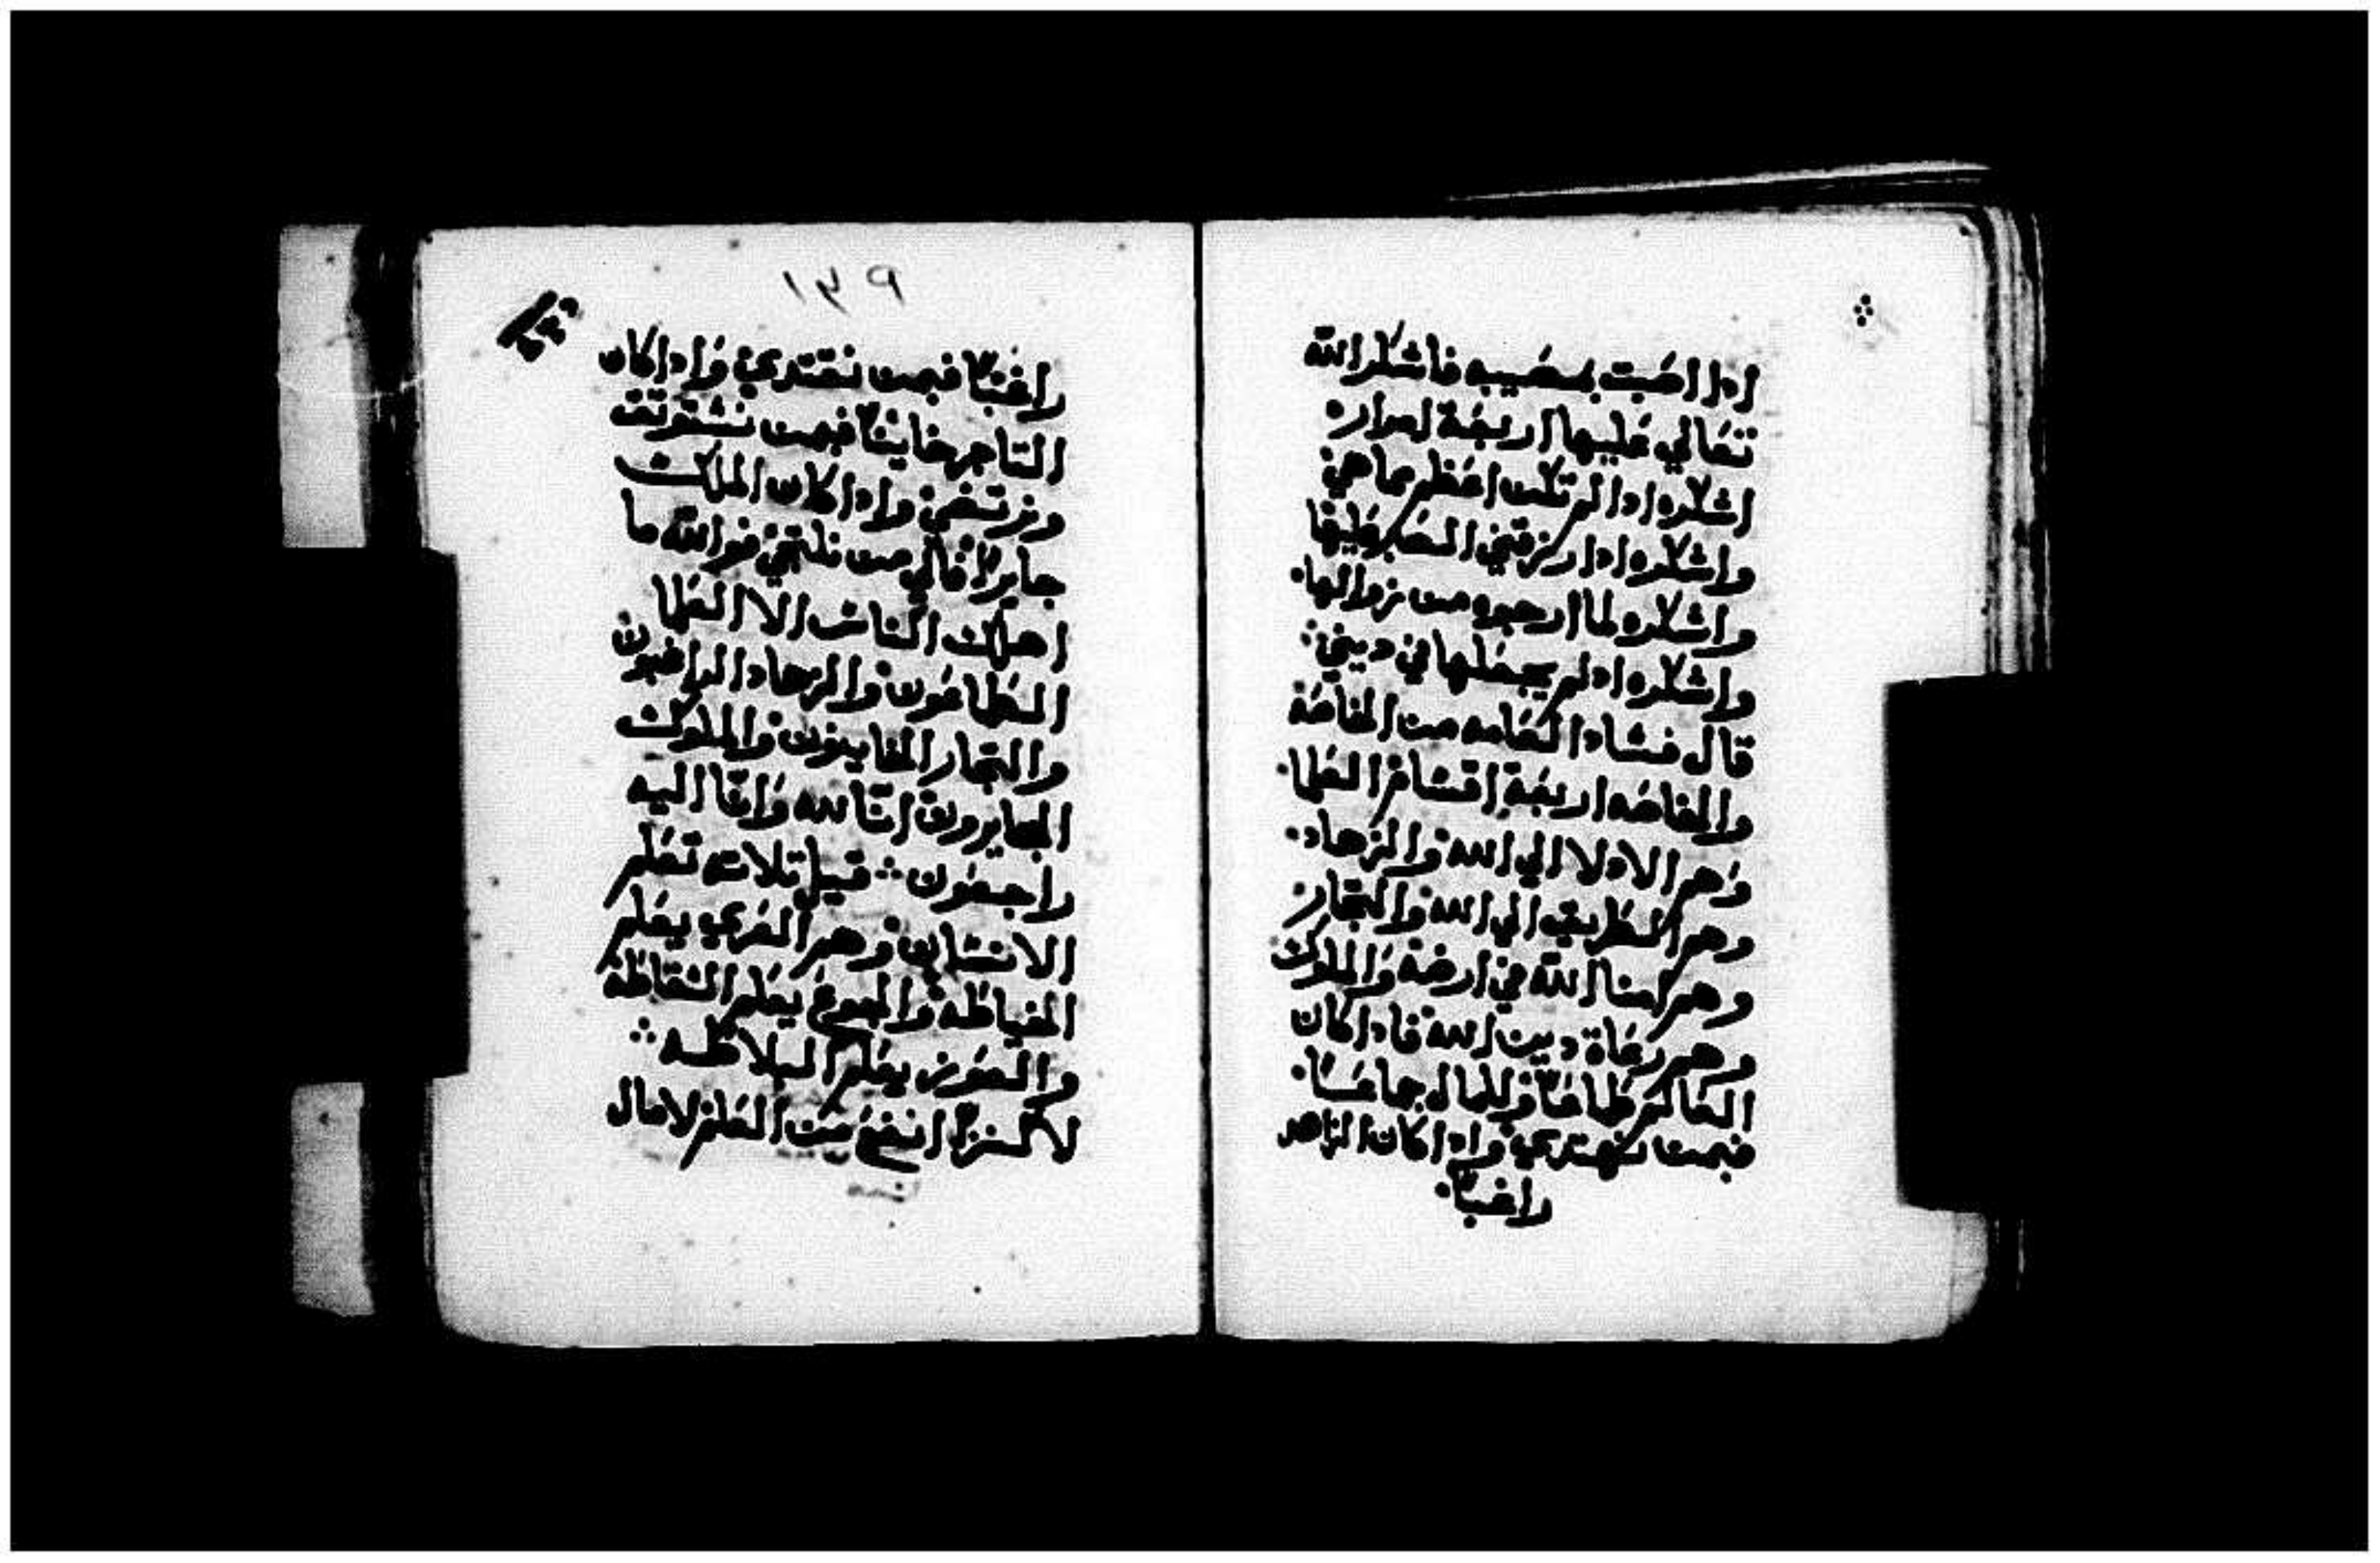 ادا اصبت بمصيبه فاشكر الله
تعالي عليها اربعة امرار ه
اشكره ادا لم تكن اعظم مما هي
واشكره ادا رزقني الصبر عليها
واشكره لما ارجوه من زوالها.
واشكره اد لم يجعلها في ديني ؞
قال فساد العامه من الخاصة
والخاصه اربعة اقسام العلما.
وهم الادلا الي الله والزهاد.
وهم الطريق الي الله والتجار
وهم امنا الله في ارضه والملوك
وهم رعاة دين الله فاداكان
العالم طامعًا وللمال جامعًا.
فبمن نهتدي واداكان الزاهد
راغبًا.
١٢٩
راغبًا فبمن نقتدي واداكان
التاجر خاينًا فبمن نستوتق
ونرتضي واداكان الملك
جايرًا فالي من نلتجي فوالله ما
اهلك الناس الا العلما
الطامعون والزهاد الراغبون
والتجار الخاينون والملوك
الجايرون انا لله وانا اليه
راجعون ؞ قيل تلات تعلم
الانسان وهم العري يعلم
الخياطه والجوع يعلم السقاطة
والعوز يعلم البلاطه ؞
لا كنزا انفع من العلم لا مال